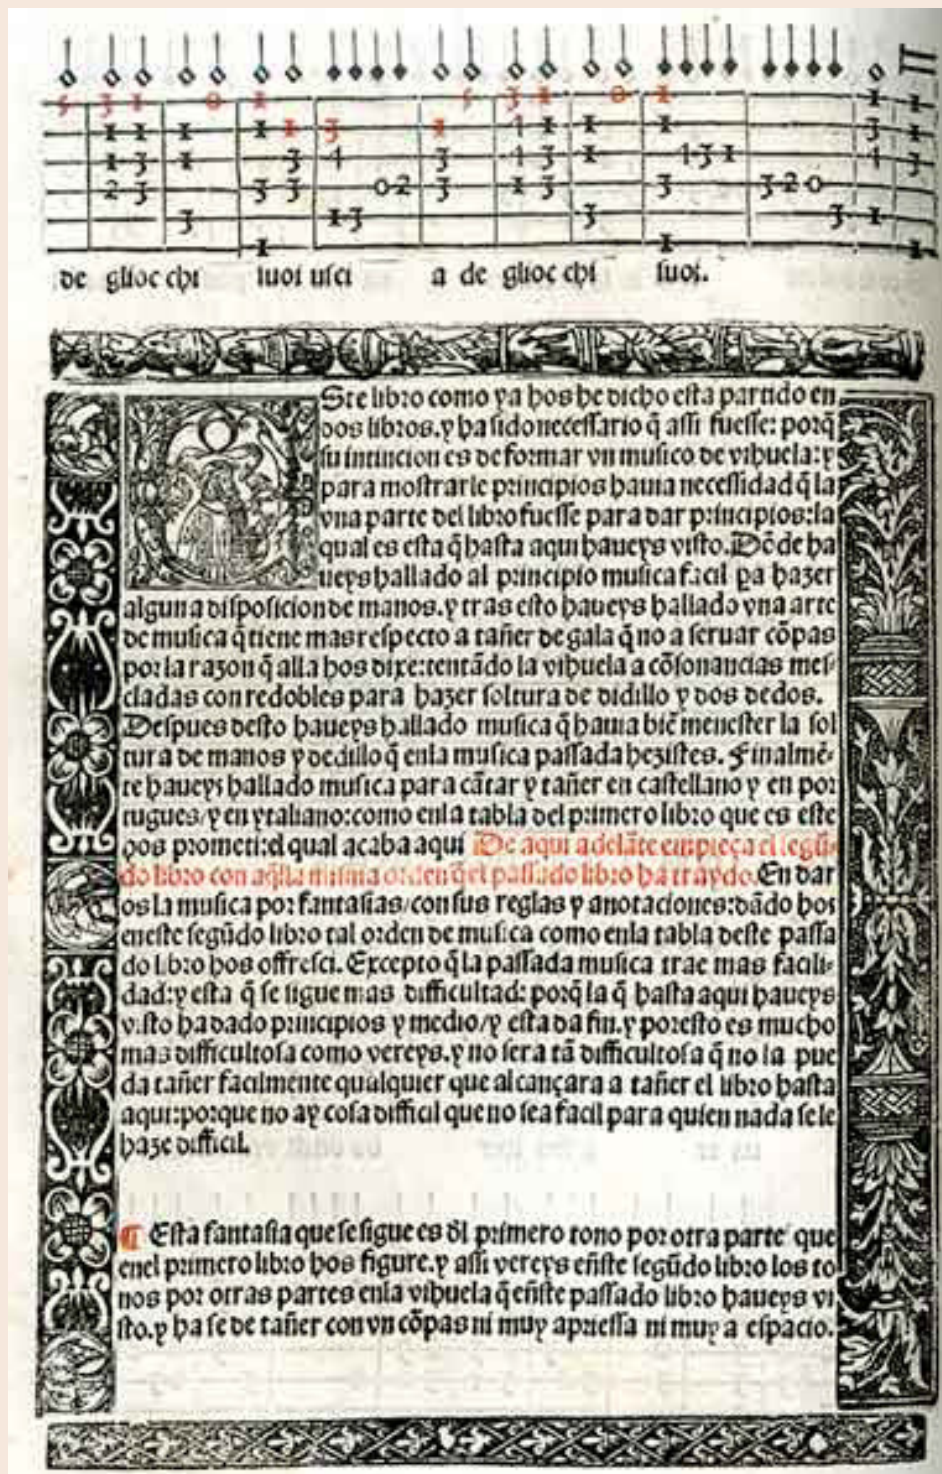 de gliocchi suoi usci a de gliocchi suoi.
Este libro como ya hos he dicho esta partido en
dos libros. y ha sido necessario q̃ assi fuesse: porq̃
su intincion es de formar vn musico de vihuela: y
para mostrarle principios hauia necessidad q̃ la
vna parte del libro fuesse para dar principios: la
qual es esta q̃ hasta aqui haueys visto. Dõde ha
ueys hallado al principio musica facil pa hazer
alguna disposicion de manos. y tras esto haueys hallado vna arte
de musica q̃ tiene mas respecto a tañer de gala q̃ no a seruar cõpas
por la razon q̃ alla hos dixe: tentãdo la vihuela a cõsonancias mes-
cladas con redobles para hazer soltura de didillo y dos dedos.
Despues desto haueys hallado musica q̃ hauia biẽ menester la sol
tura de manos y dedillo q̃ enla musica passada hezistes. Finalmẽ-
te haueys hallado musica para cãtar y tañer en castellano y en por
tugues/ y en ytaliano: como enla tabla del primero libro que es este
hos prometi: el qual acaba aqui De aqui adelãte empieça el segũ-
do libro con aq̃lla misma orden q̃ el passado libro ha traydo. En dar
os la musica por fantasias/ con sus reglas y anotaciones: dãdo hos
eneste segũdo libro tal orden de musica como enla tabla deste passa
do libro hos offresci. Excepto q̃ la passada musica trae mas facili-
dad: y esta q̃ se sigue mas difficultad: porq̃ la q̃ hasta aqui haueys
visto ha dado principios y medio/ y esta da fin. y poresto es mucho
mas difficultosa como vereys. y no sera tã difficultosa q̃ no la pue
da tañer facilmente qualquier que alcançara a tañer el libro hasta
aqui: porque no ay cosa difficil que no sea facil para quien nada se le
haze difficil.
¶ Esta fantasia que se sigue es dl primero tono por otra parte que
enel primero libro hos figure. y assi vereys enste segũdo libro los to
nos por otras partes enla vihuela q̃ enste passado libro haueys vi
sto. y ha se de tañer con vn cõpas ni muy apriessa ni muy a espacio.